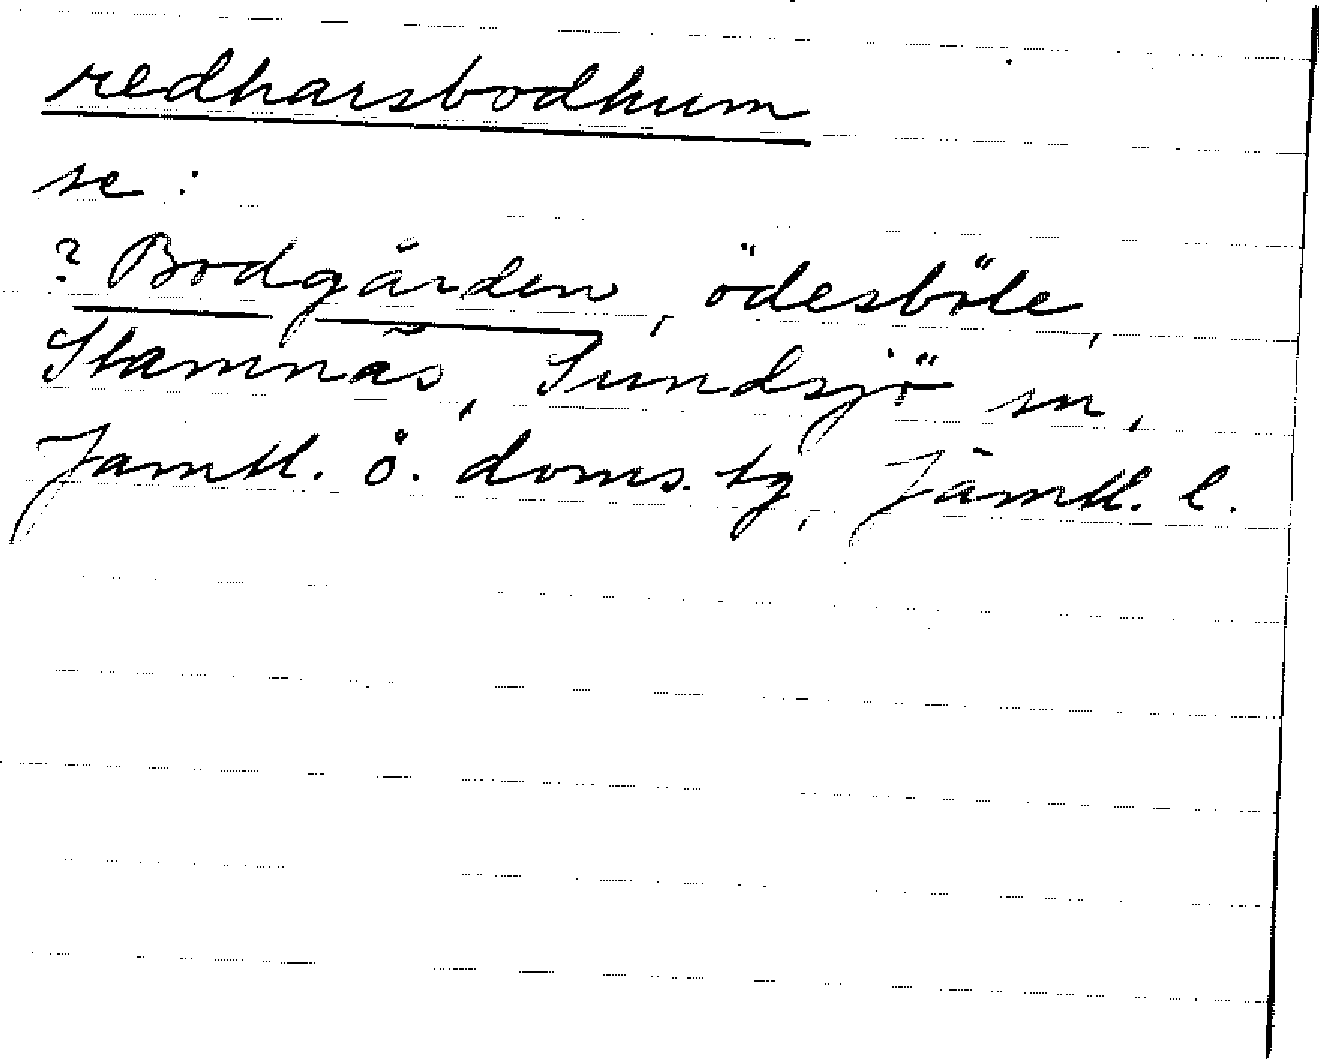 redharsbodhum
se :
? Bodgården, ödesböle,
Stamnäs, Sundsjö sn,
Jämtl. ö. doms. tg, Jämtl. l.